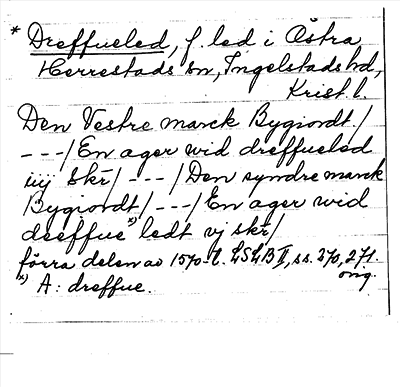 * Dreffueled, f. led i Östra
Herrestads sn, Ingelstads hd,
Krist. l.
Den Vestre marck Bygiordt/
---/En ager wid dreffueled
iiij skr/ ---/Den syndre marck
Bygiordt/---/En ager wid
dreeffue x) ledt vj skr/
förra delen av 1570-t. LSLB II, ss. 270, 271.
orig.
x) A: dreffue.